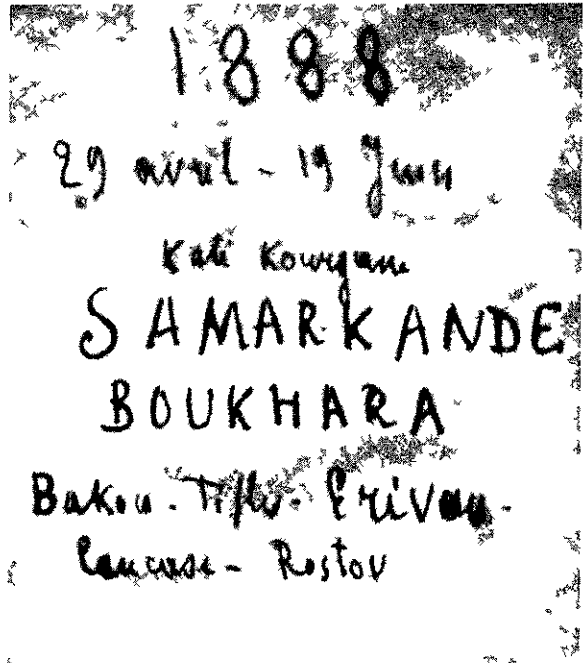 1888
29 avril - 19 Juin
Kati Kourgane
SAMARKANDE
BOUKHARA
Bakou. Tiflis. Erivan.
Caucase - Rostov